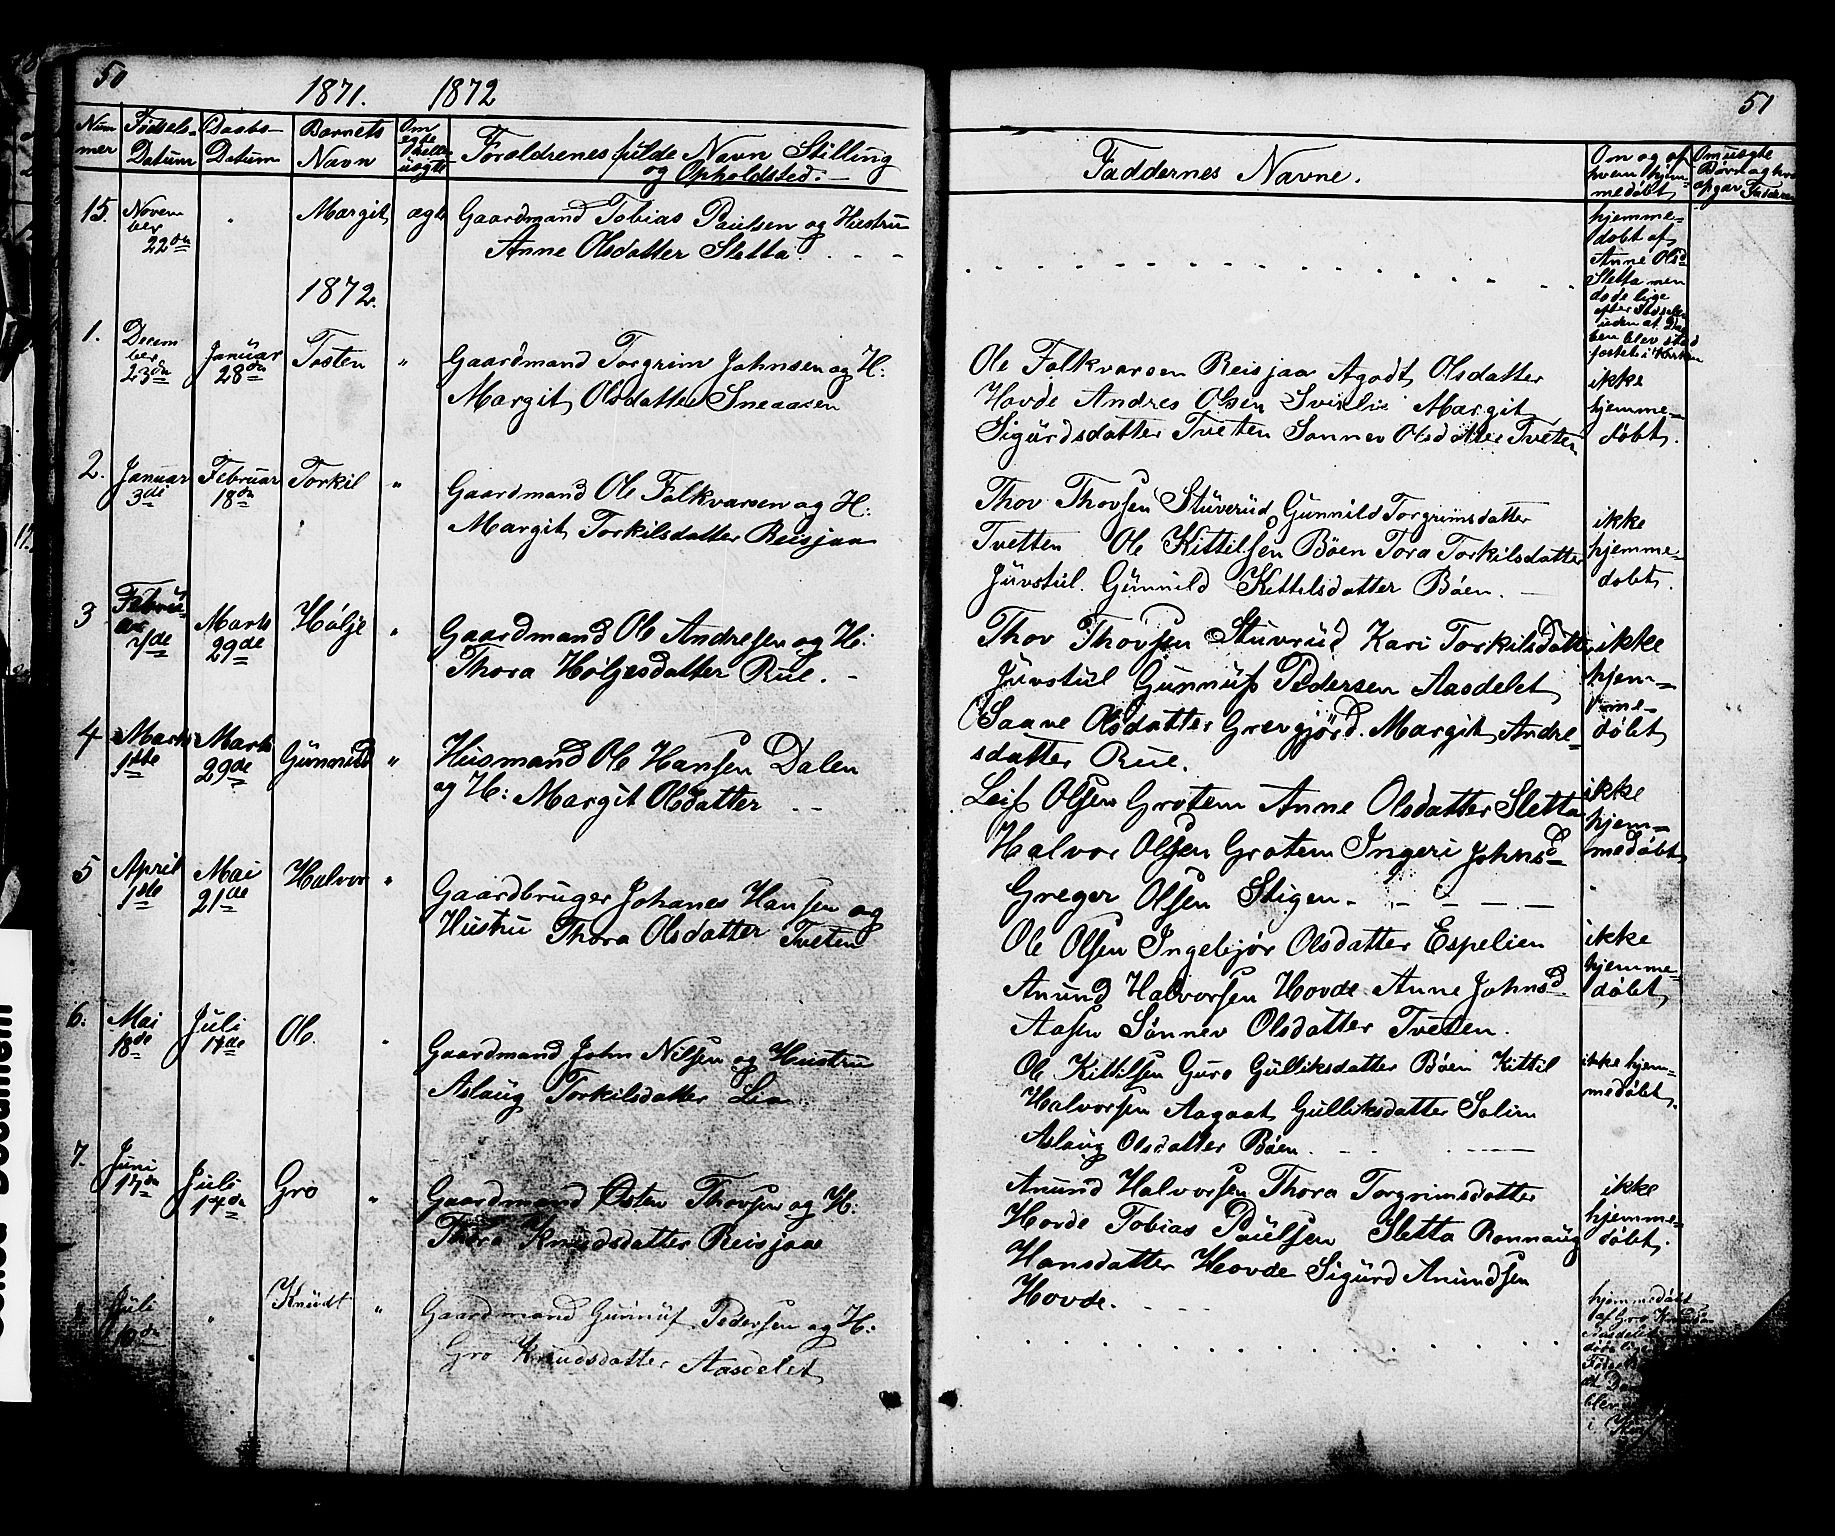 50
1871. 1872
Num
mer
Fødsels-
Datum
Daabs-
Datum
Barnets
Navn
Om
egte
eller
uegte
Foroldrenes fulde Navn Stilling
og Opholdsted.
15.
Novem
ber
22de
Margit
ægte
Gaardmand Tobias Paulsen og Hustru
Anne Olsdatter Sletta
1872.
1.
Decem
ber
23de
Januar
28de
Tosten
"
Gaardmand Torgrim Johnsen og H:
Margit Olsdatter Sneaasen
2.
Januar
3di
Februar
18de
Torkil
"
Gaardmand Ole Folkvarsen og H:
Margit Torkilsdatter Reisjaa
3
Februar
7de
Marts
29de
Hølje
"
Gaardmand Ole Andresen og H:
Thora Høljesdatter Rue.
4
Marts
1ste
Marts
29de
Gunnild
"
Husmand Ole Hansen Dalen
og H: Margit Olsdatter
5
April
1ste
Mai
21de
Halvor
"
Gaardbruger Johanes Hansen og
Hustru Thora Olsdatter Tveten
6.
Mai
18de
Juli
14de
Ole
"
Gaardmand John Nilsen og Hustru
Aslaug Torkilsdatter Lia
7.
Juni
17de
Juli
14de
Gro
"
Gaardmand Østen Thovsen og H:
Thora Knudsdatter Reisjaa
Juli
Knudt
"
Gaardmand Gunnuf Pedersen og H:
Gro Knudsdatter Aasdelet
51
Faddernes Navne.
Om og af
hvem hjem-
medøbt
Om uegte
Børn og hvo
opgav Faderen
hjemme-
døbt af
Anne Olsd
Sletta men
døde lige
efter Fødselen
uden at Daa
ben blev stad
fæstet i Kirken
Ole Folkvarsen Reisjaa Agodt Olsdatter
Hovde Andres Olsen Svirlie Margit
Sigurdsdatter Tveten Sønnev Olsdatter Tveten
ikke
hjemme-
døbt.
Thov Thovsen Stuverud Gunnild Torgrimsdatter
Tvetten Ole Kittilsen Bøen Tora Torkilsdatter
Juvstul. Gunnild Kittilsdatter Bøen.
ikke
hjemme-
døbt.
Thov Thovsen Stuvrud Kari Torkilsdatter
Juvstul Gunnuf Pedersen Aasdelet
Saave Olsdatter Grevgjørd. Margit Andre-
sdatter Rue.
ikke
hjem-
me-
døbt
Leif Olsen Grotem Anne Olsdatter Sletta
Halvor Olsen Grotem Ingeri Johnsd
Greger Olsen Stigen.
ikke
hjem-
medøbt
Ole Olsen Ingebjør Olsdatter Espelien
Anund Halvorsen Hovde Anne Johnsd
Aasen Sønnev Olsdatter Tveten.
ikke
hjemme-
døbt
Ole Kittilsen Guro Gulliksdatter Bøen Kittil
Halvorsen Aagaat Gulliksdatter Solim
Aslaug Olsdatter Bøen.
ikke hjem-
medøbt.
Anund Halvorsen Thora Torgrimsdatter
Hovde Tobias Paulsen Sletta Rønnaug
Hansdatter Hovde Sigurd Anundsen
Hovde.
ikke
hjemme-
døbt.
hjemmedøbt
af Gro Knuds
Aasdelet
døde lige
Fødsel
at Daa
blev
i Kir